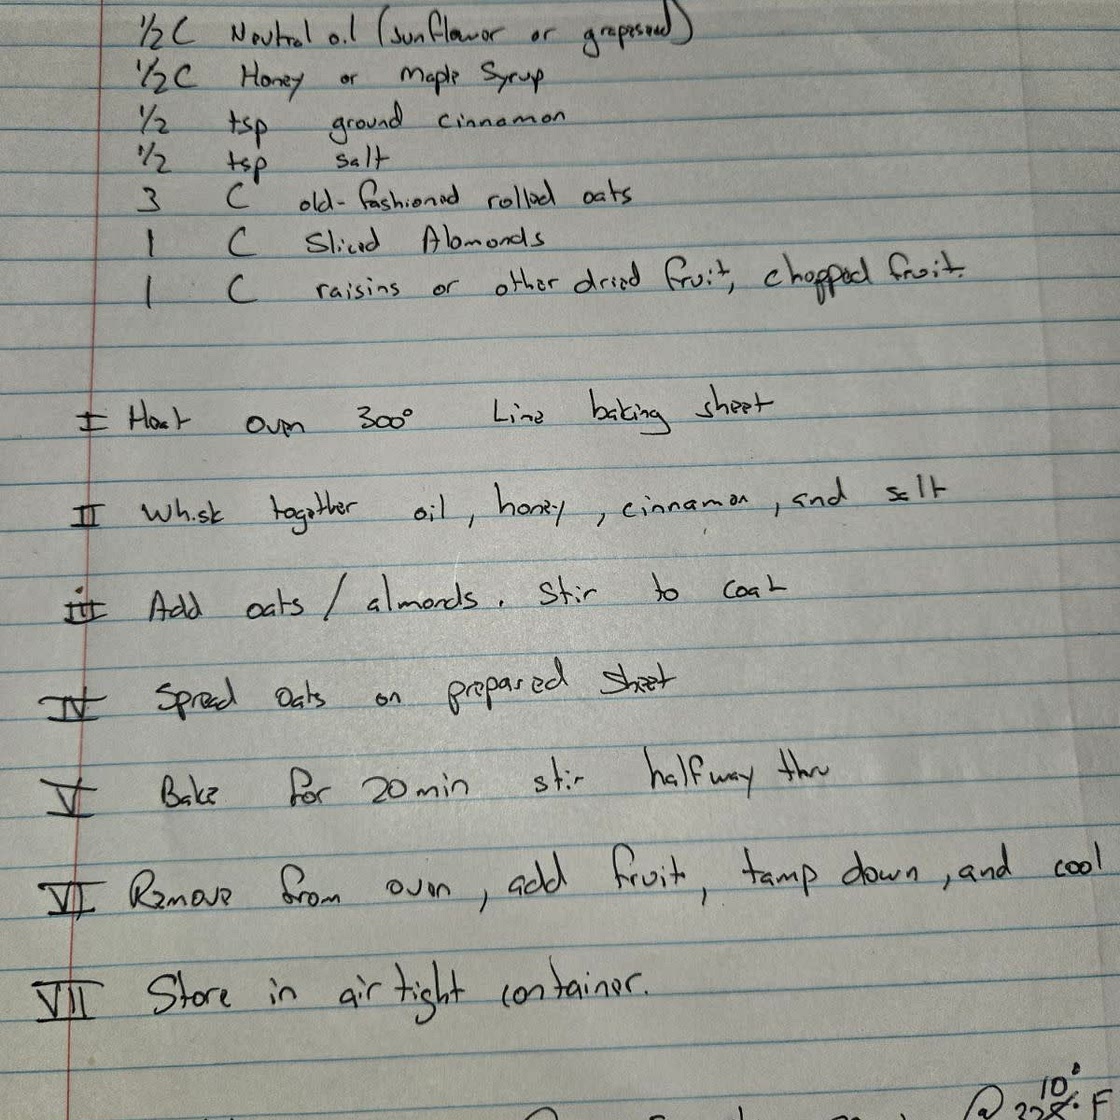 ½ C Neutral oil (sunflower or grapeseed)
½ C Honey or Maple Syrup
½ tsp ground cinnamon
½ tsp salt
3 C old-fashioned rolled oats
1 C Sliced Almonds
1 C raisins or other dried fruit, chopped fruit.
I Heat oven 300° Line baking sheet
II Whisk together oil, honey, cinnamon, and salt
III Add oats / almonds. Stir to coat
IV Spread oats on prepared sheet
V Bake for 20 min stir halfway thru
VI Remove from oven, add fruit, tamp down, and cool
VII Store in air tight container.
@
10°
F